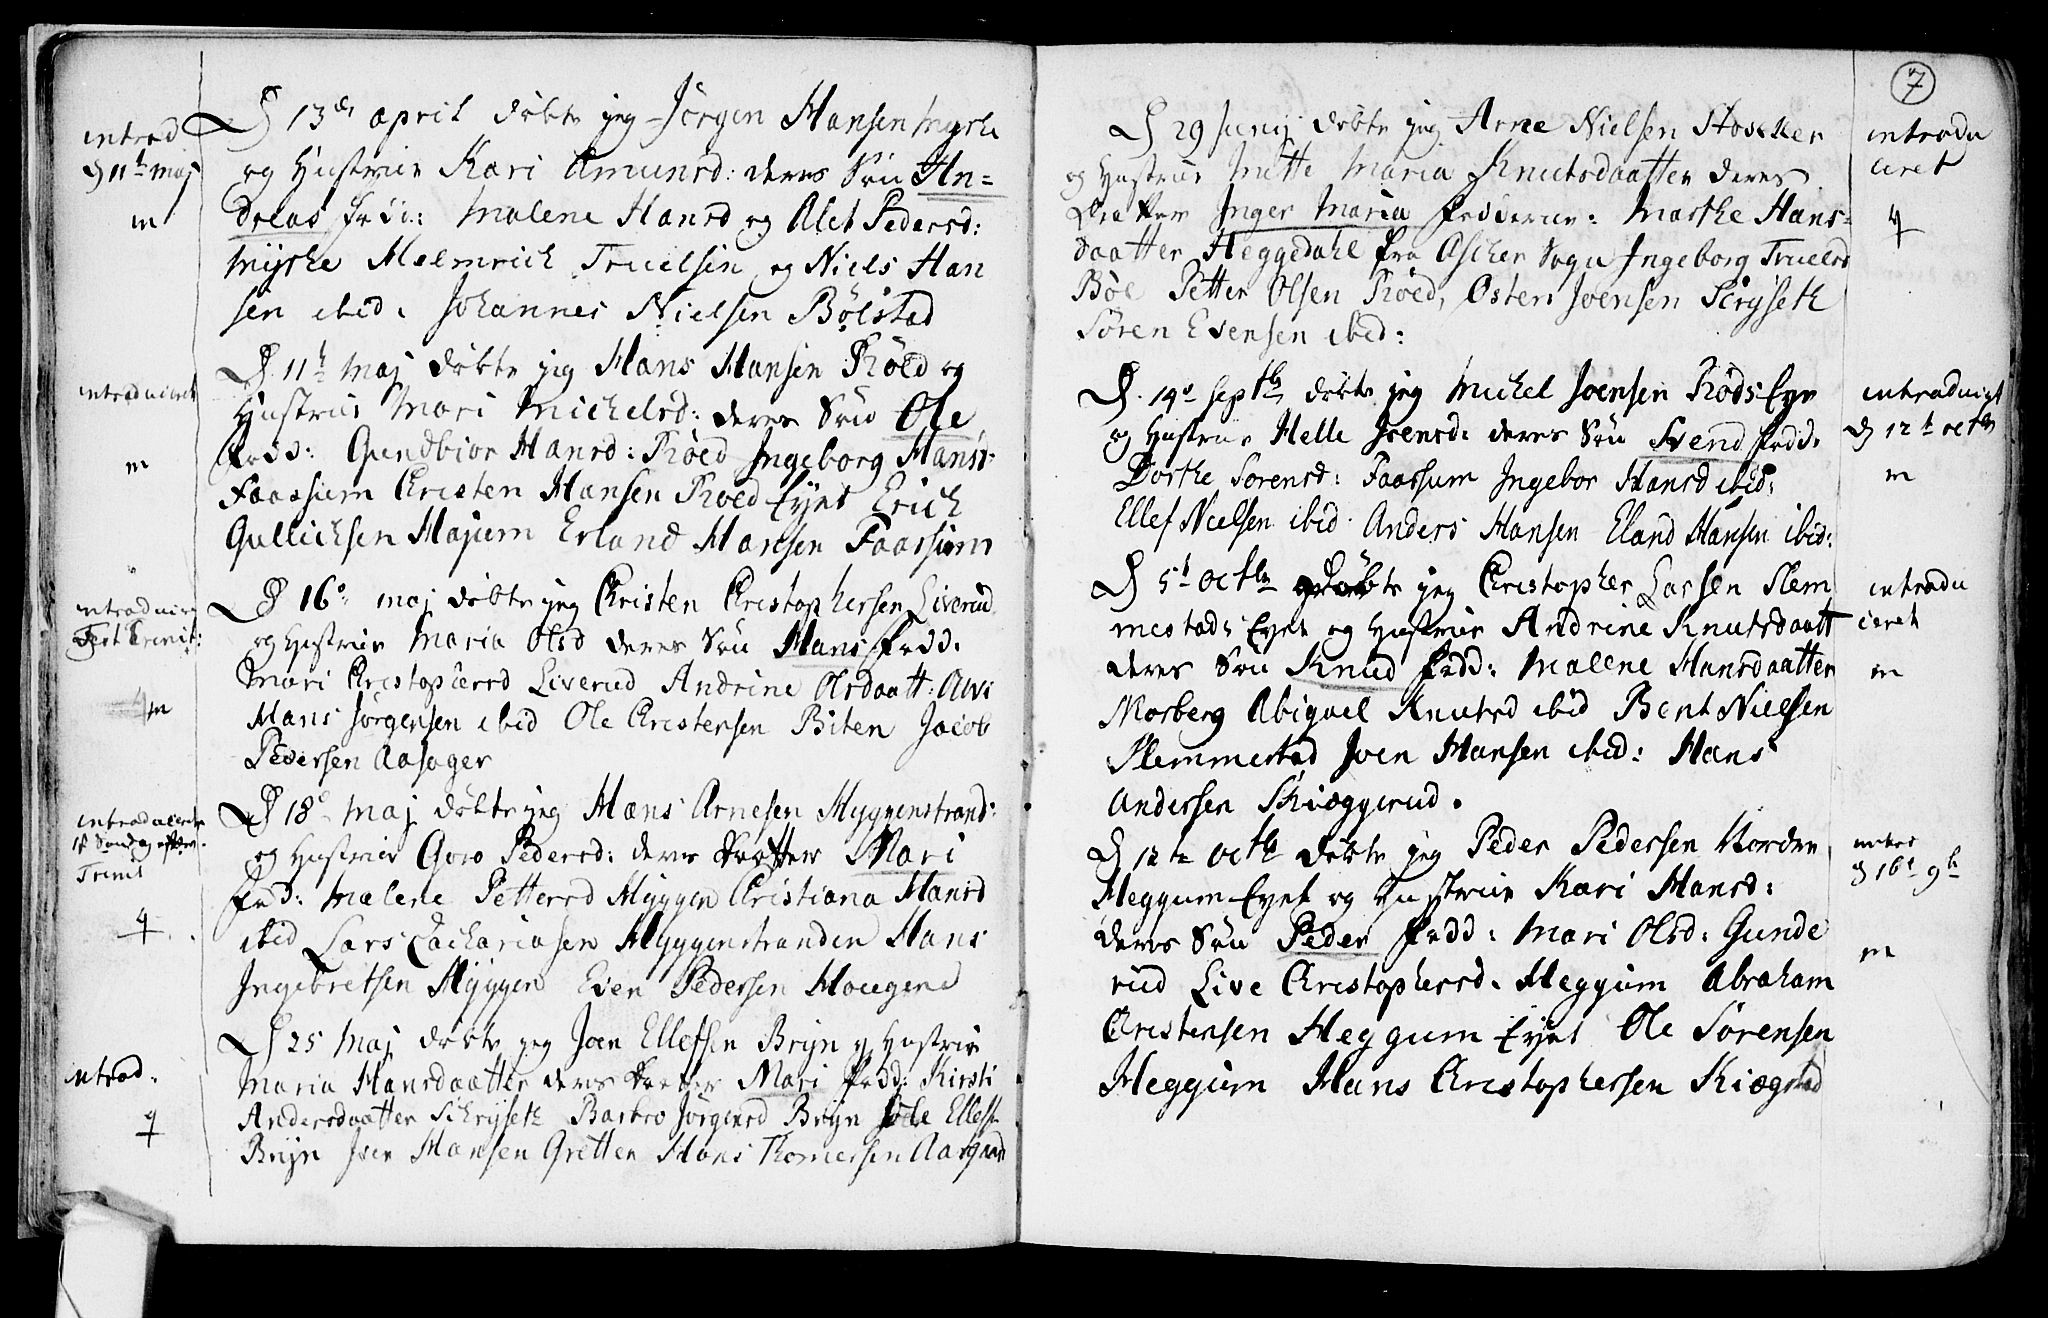 introd
D 11te maj
m
D 13de april döbte jeg Jörgen Hansen Myrhe
og Hustrue Kari Amunsd: deres Sön An=
dreas fadd: Malene Hansd og Alet Pedersd:
Myrhe Helmrich Truelsen og Niels Han
sen ibid. Johannes Nielsen Bölstad
introduceret
m
D. 11te maj döbte jeg Hans Hansen Röed og
Hustrue Mari Michelsd: deres Sön Ole
fadd: Gundbior Hansd: Röed Ingeborg Hansd:
Faassum Christen Hansen Röed Eyet Erich
Gullichsen Hajum Erland Hansen Faassum
introducer
Fest Trinit:
m
D 16de maj döbte jeg Christen Christophersen Liverud
og Hustrue Maria Olsd deres Sön Hans fadd.
Mari Christophersd Liverud Andrine Olsdaatt:
Hans Jörgensen ibid Ole Christensen Biten Jacob
Pedersen Aasager
introduceret
1st Söndag efter
Trinit
q
D 18de Maj döbte jeg Hans Arnesen Hyggenstrand:
og Hustrue Goro Pedersd: deres datter Mari
fad: Malene Pettersd Hyggen Cristiana Hansd
ibid Lars Zachariasen Hyggenstranden Hans
Ingebretsen Hyggen Even Pedersen Hougene
introd.
q
D 25 Maj döbte jeg Joen Ellefsen Bryn og Hustrue
Maria Hansdaatter deres datter Mari fadd: Kirsti
Andersdaatter Schryseth Barbro Jörgensd Bryn Ellefs
Bryn Iver Hansen Gretten Hans Thomessen Aargaard
7
D 29 Junij döbte jeg Arne Nielsen Stocker
og Hustrue Mette Maria Knutsdaatter deres
datter Inger Maria fadderne: Marthe Hans=
daatter Heggedahl fra Ascher Sogn Ingeborg Truelsd
Böe Petter Olsen Röed, Osten Joensen Scryseth
Sören Evensen ibid:
introdu
ceret
q
D. 14de Septbr döbte jeg Michel Joensen Röds Eye
og Hustrue Helle Ivensd: deres Sön Svend fadd.
Dorthe Sorensd: Faassum Ingebor Hansd ibid:
Ellef Nielsen ibid Anders Hansen Eland Hansen ibid:
introducirt
D 12te octbr
m
D 5te Octbr döbte jeg Christopher Larsen Slem
mestads Eyet og Hustrue Andrine Knutsdaatt
deres Sön Knud fadd: Malene Hansdaatter
Morberg Abigael Knutsd ibid Bent Nielsen
Slemmestad Joen Hansen ibid: Hans
Andersen Skiæggerud.
introdu
ceret
m
D 12te Octbr döbte jeg Peder Pedersen Nordre
Heggum Eyet og Hustrue Kari Hansd:
deres Sön Peder fadd: Mari Olsd: Gunde
rud Live Christophersd. Heggum Abraham
Christensen Heggum Eyet Ole Sörensen
Heggum Hans Christophersen Kiægstad
D 16de 9br
m